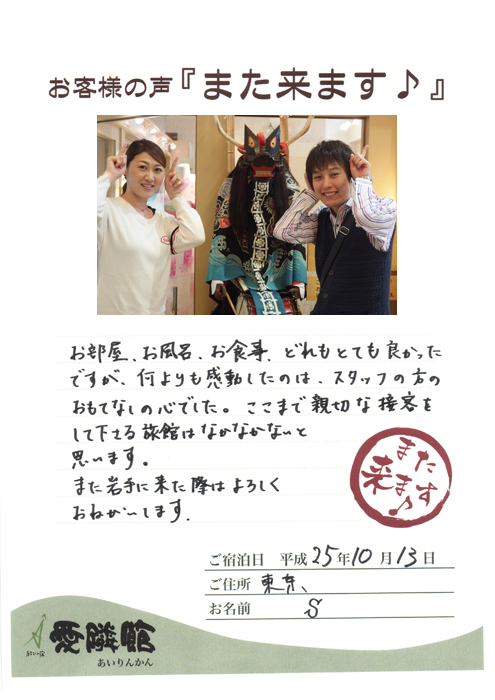 お客様の声『また来ます♪』
お部屋、お風呂、お食事、どれもとても良かった
ですが、何よりも感動したのは、スタッフの方の
おもてなしの心でした。ここまで親切な接客を
して下さる旅館はなかなかないと
思います。
また岩手に来た際はよろしく
おねがいします。
また
来ます♪
ご宿泊日 平成25年10月13日
ご住所 東京、
お名前 S
愛隣館
あいりんかん